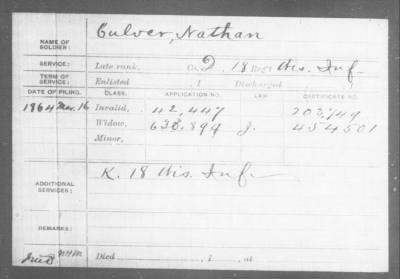 NAME OF SOLDIER: Culver, Nathan
SERVICE: Late rank, Co. D, 18 Reg't Wis. Inf.
TERM OF SERVICE: Enlisted , 1 Discharged , 1
DATE OF FILING. CLASS. APPLICATION NO. LAW. CERTIFICATE NO.
1864 Mar. 16 Invalid, 42,447 203,749
Widow, 633,894 J. 454501
Minor,
ADDITIONAL SERVICES: K. 18 Wis. Inf.
REMARKS:
Died , 1 , at